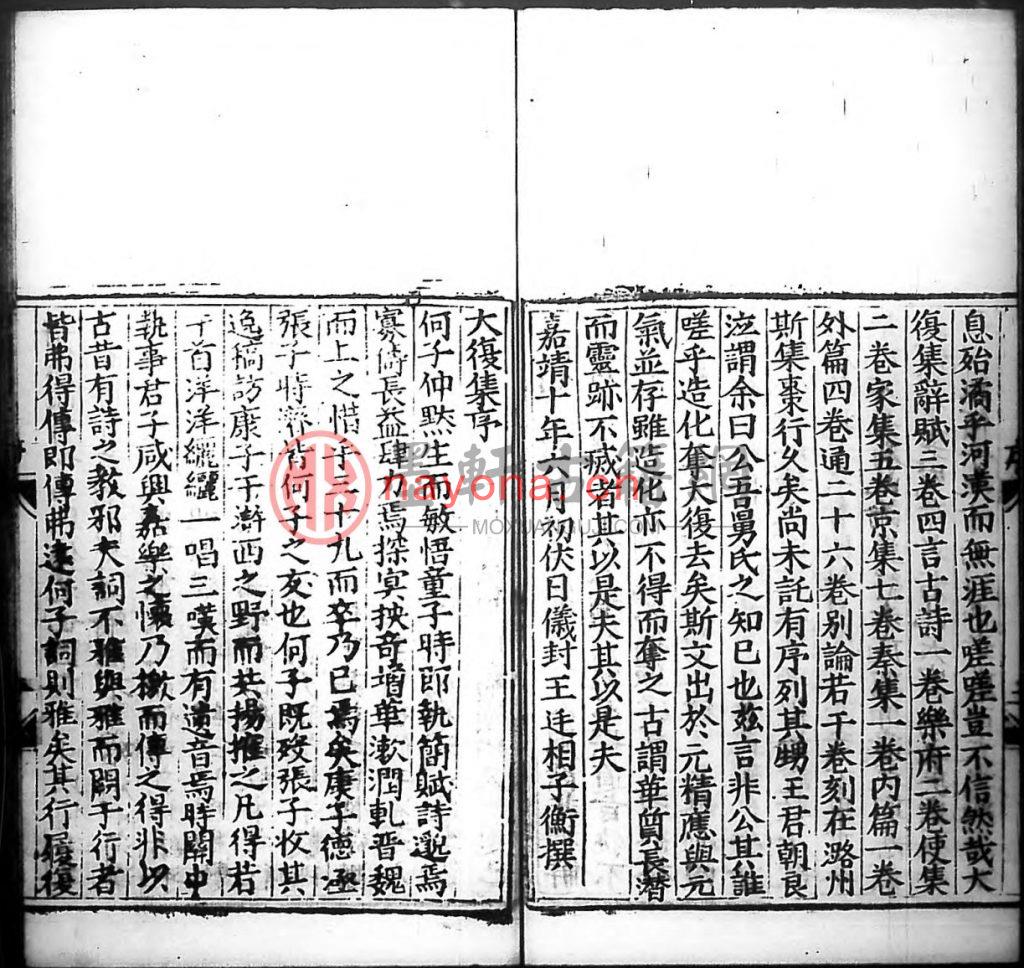 息殆潏乎河漢而無涯也嗟嗟豈不信然哉大
復集辭賦三卷四言古詩一卷樂府二卷使集
二卷家集五卷京集七卷秦集一卷内篇一卷
外篇四卷通二十六卷别論若干卷刻在潞州
斯集棗行久矣尚未託有序列其甥王君朝良
泣謂余曰公吾舅氏之知已也兹言非公其誰
嗟乎造化奪大復去矣斯文出於元精應與元
氣並存雖造化亦不得而奪之古謂華質長濳
而靈跡不㓕者其以是夫其以是夫
嘉靖十年六月初伏日儀封王廷相子衡撰
大復集序
何子仲黙生而敏悟童子時即執簡賦詩邈焉
寡儔長益肆力焉探冥抉奇墙華漱潤軋晋魏
而上之惜乎三十九而卒乃已焉矣康子德涵
張子時濟皆何子之友也何子既歿張子收其
逸稿訪康子于滸西之野而共揚搉之凡得若
干首洋洋纚纚一唱三嘆而有遺音焉時關中
執事君子咸興嘉樂之懷乃檄而傳之得非以
古昔有詩之教邪夫詞不雅與雅而闕于行者
皆弗得傳即傳弗逺何子詞則雅矣其行履復
墨軒古籍網
nayona.cn